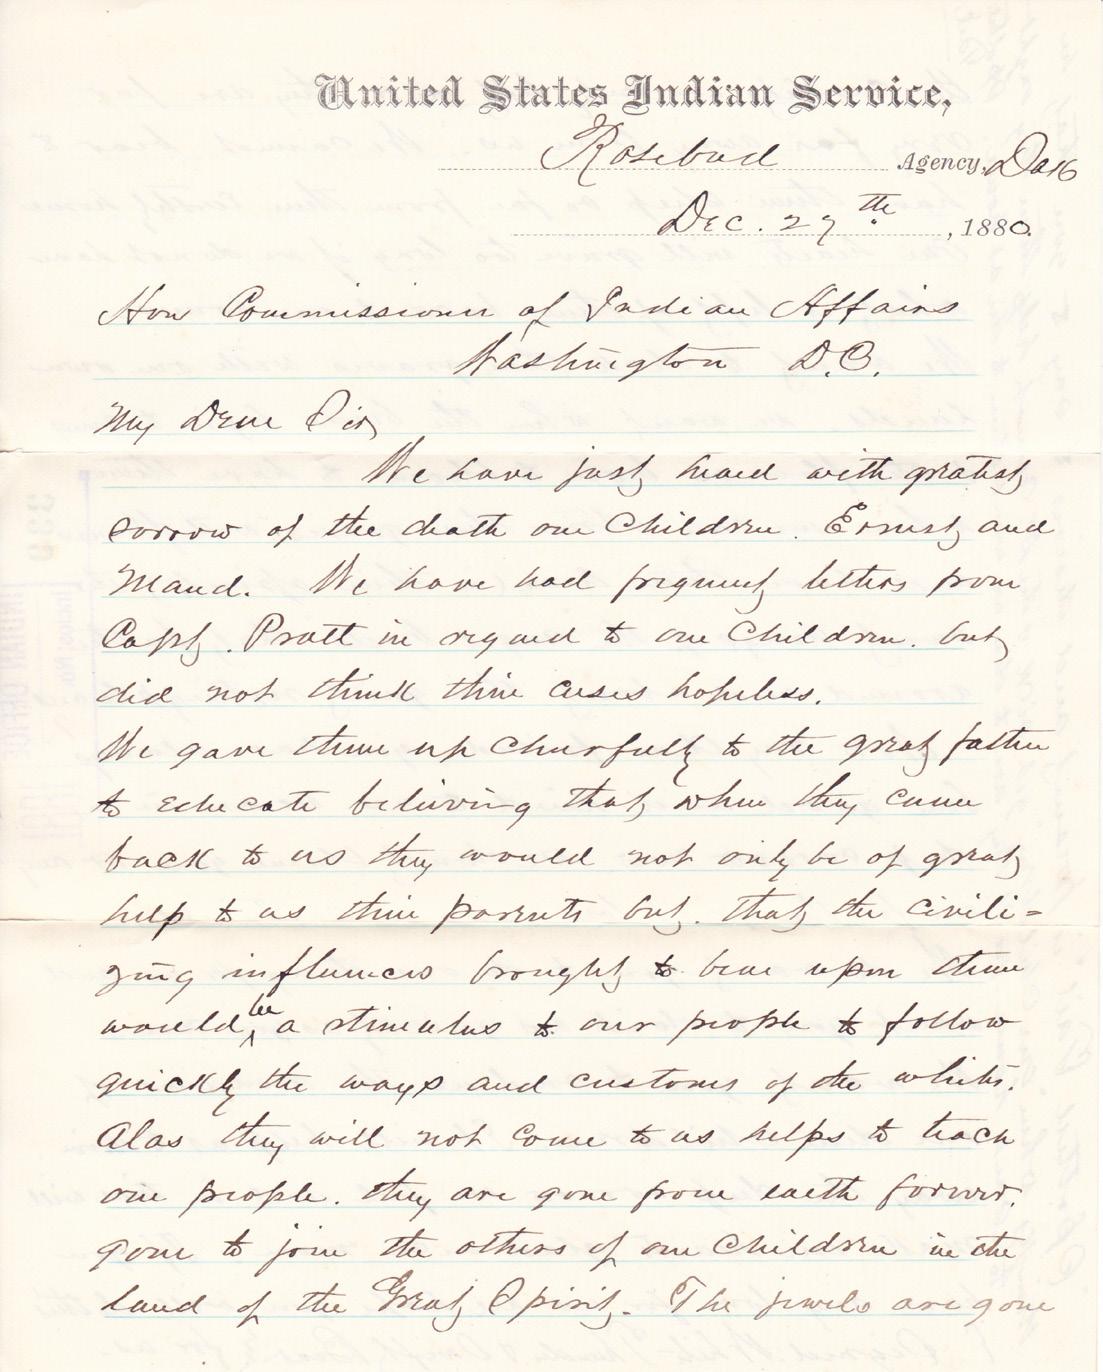 United States Indian Service,
Rosebud Agency, Dak
Dec. 27th, 1880.
Hon Commissioner of Indian Affairs
Washington D.C.
My Dear Sir,
We have just heard with greatest
sorrow of the death our Children. Ernest and
Maud. We have had frequent letters from
Capt. Pratt in regard to our Children. but
did not think their cases hopeless.
We gave them up cheerfully to the great father
to educate believing that when they came
back to us they would not only be of great
help to us their parents but. that the civili=
zing influences brought to bear upon them
would be a stimulus to our people to follow
quickly the ways and customs of the whites.
Alas they will not come to us helps to teach
our people. they are gone from earth forever.
gone to join the others of our Children in the
land of the Great Spirit. The jewels are gone